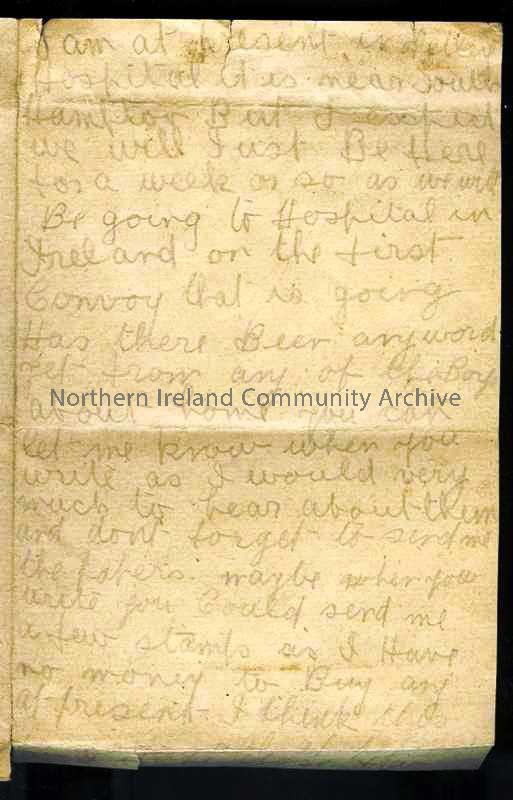 I am at present in Netley
Hospital it is near South
Hampton But I expect
we will Just Be Here
for a week or so as we will
Be going to Hospital in
Ireland on the first
Convoy that is going
Has there Been any word
yet from any of the Boys
Northern Ireland Community Archive
about home you can
let me know when you
write as I would very
much to hear about them
and dont forget to send me
the papers. maybe when you
write you Could send me
a few stamps as I Have
no money to Buy any
at present I think this